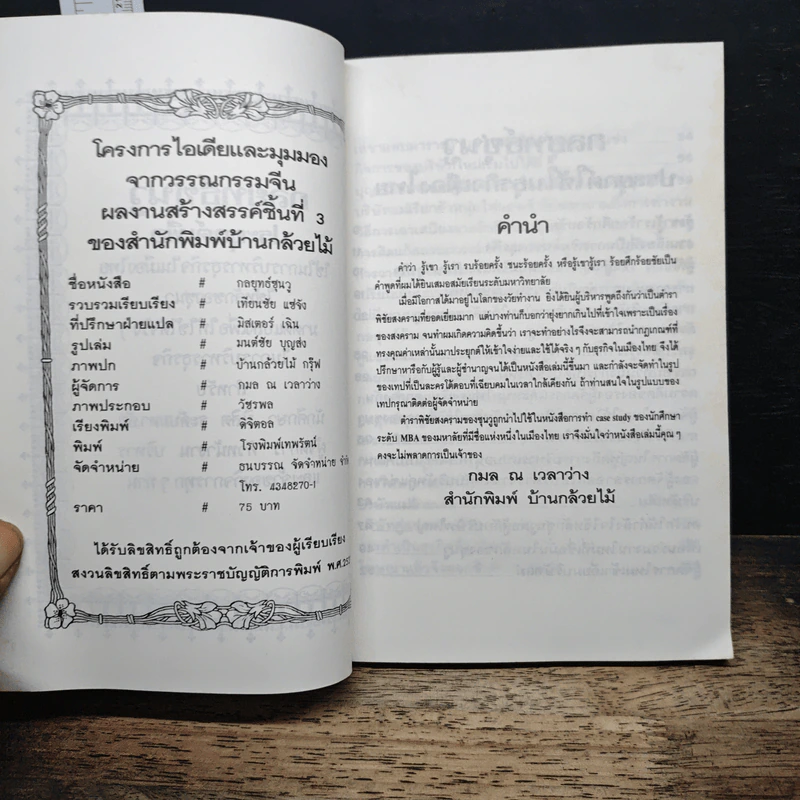 โครงการไอเดียและมุมมอง
จากวรรณกรรมจีน
ผลงานสร้างสรรค์ชิ้นที่ 3
ของสำนักพิมพ์บ้านกล้วยไม้
ชื่อหนังสือ # กลยุทธ์ซุนวู
รวบรวมเรียบเรียง # เทียนชัย แซ่จัง
ที่ปรึกษาฝ่ายแปล # มิสเตอร์ เฉิน
รูปเล่ม # มนต์ชัย บุญส่ง
ภาพปก # บ้านกล้วยไม้ กรุ๊ฟ
ผู้จัดการ # กมล ณ เวลาว่าง
ภาพประกอบ # วัชรพล
เรียงพิมพ์ # ดิจิตอล
พิมพ์ # โรงพิมพ์เทพรัตน์
จัดจำหน่าย # ธนบรรณ จัดจำหน่าย
โทร. 4348270-1
ราคา # 75 บาท
ได้รับลิขสิทธิ์ถูกต้องจากเจ้าของผู้เรียบเรียง
สงวนลิขสิทธิ์ตามพระราชบัญญัติการพิมพ์
คำนำ
คำว่า รู้เขา รู้เรา รบร้อยครั้ง ชนะร้อยครั้ง หรือรู้เขารู้เรา ร้อยศึกร้อยชัยเป็น
คำพูดที่ผมได้ยินเสมอสมัยเรียนระดับมหาวิทยาลัย
เมื่อมีโอกาสได้มาอยู่ในโลกของวัยทำงาน ยิ่งได้ยินผู้บริหารพูดถึงกันว่าเป็นตำรา
พิชัยสงครามที่ยอดเยี่ยมมาก แต่บางท่านก็บอกว่ายุ่งยากเกินไปที่เข้าใจเพราะเป็นเรื่อง
ของสงคราม จนทำผมเกิดความคิดขึ้นว่า เราจะทำอย่างไรจึงจะสามารถนำกฎเกณฑ์ที่
ทรงคุณค่าเหล่านั้นมาประยุกต์ให้เข้าใจง่ายและใช้ได้จริง ๆ กับธุรกิจในเมืองไทย จึงได้
ปรึกษาหารือกับผู้รู้และผู้ชำนาญจนได้เป็นหนังสือเล่มนี้ขึ้นมา และกำลังจะจัดทำในรูป
ของเทปที่เป็นละครโต้ตอบที่เฉียบคมในเวลาใกล้เคียงกัน ถ้าท่านสนใจในรูปแบบของ
เทปกรุณาติดต่อผู้จัดจำหน่าย
ตำราพิชัยสงครามของซุนวูถูกนำไปใช้ในหนังสือการทำ case study ของนักศึกษา
ระดับ MBA ของมหาลัยที่มีชื่อแห่งหนึ่งในเมืองไทย เราจึงมั่นใจว่าหนังสือเล่มนี้คุณ ๆ
คงจะไม่พลาดการเป็นเจ้าของ
กมล ณ เวลาว่าง
สำนักพิมพ์ บ้านกล้วยไม้